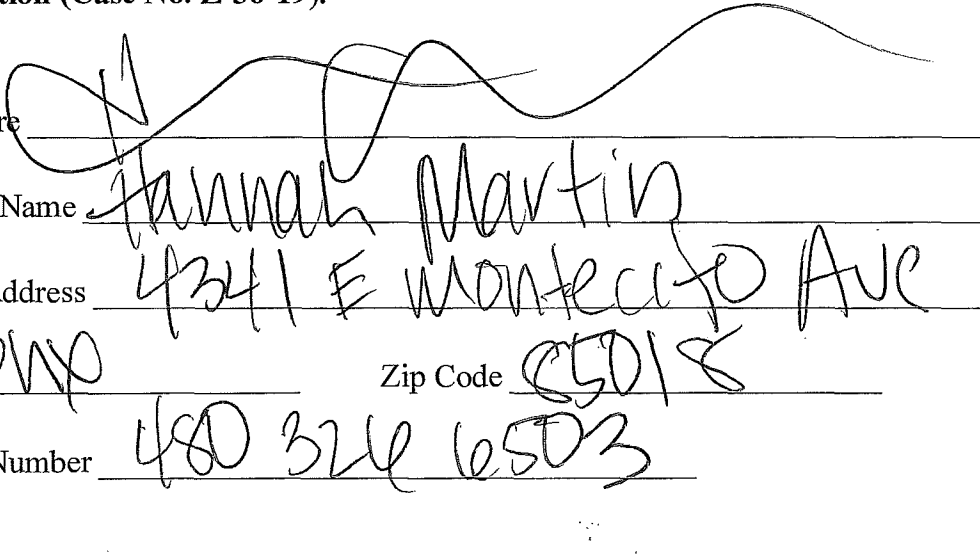 tion (Case No. Z-56-19).
re
Name Hannah Martin
ddress 4341 E Montecito Ave
Phx Zip Code 85018
Number 480 324 6503